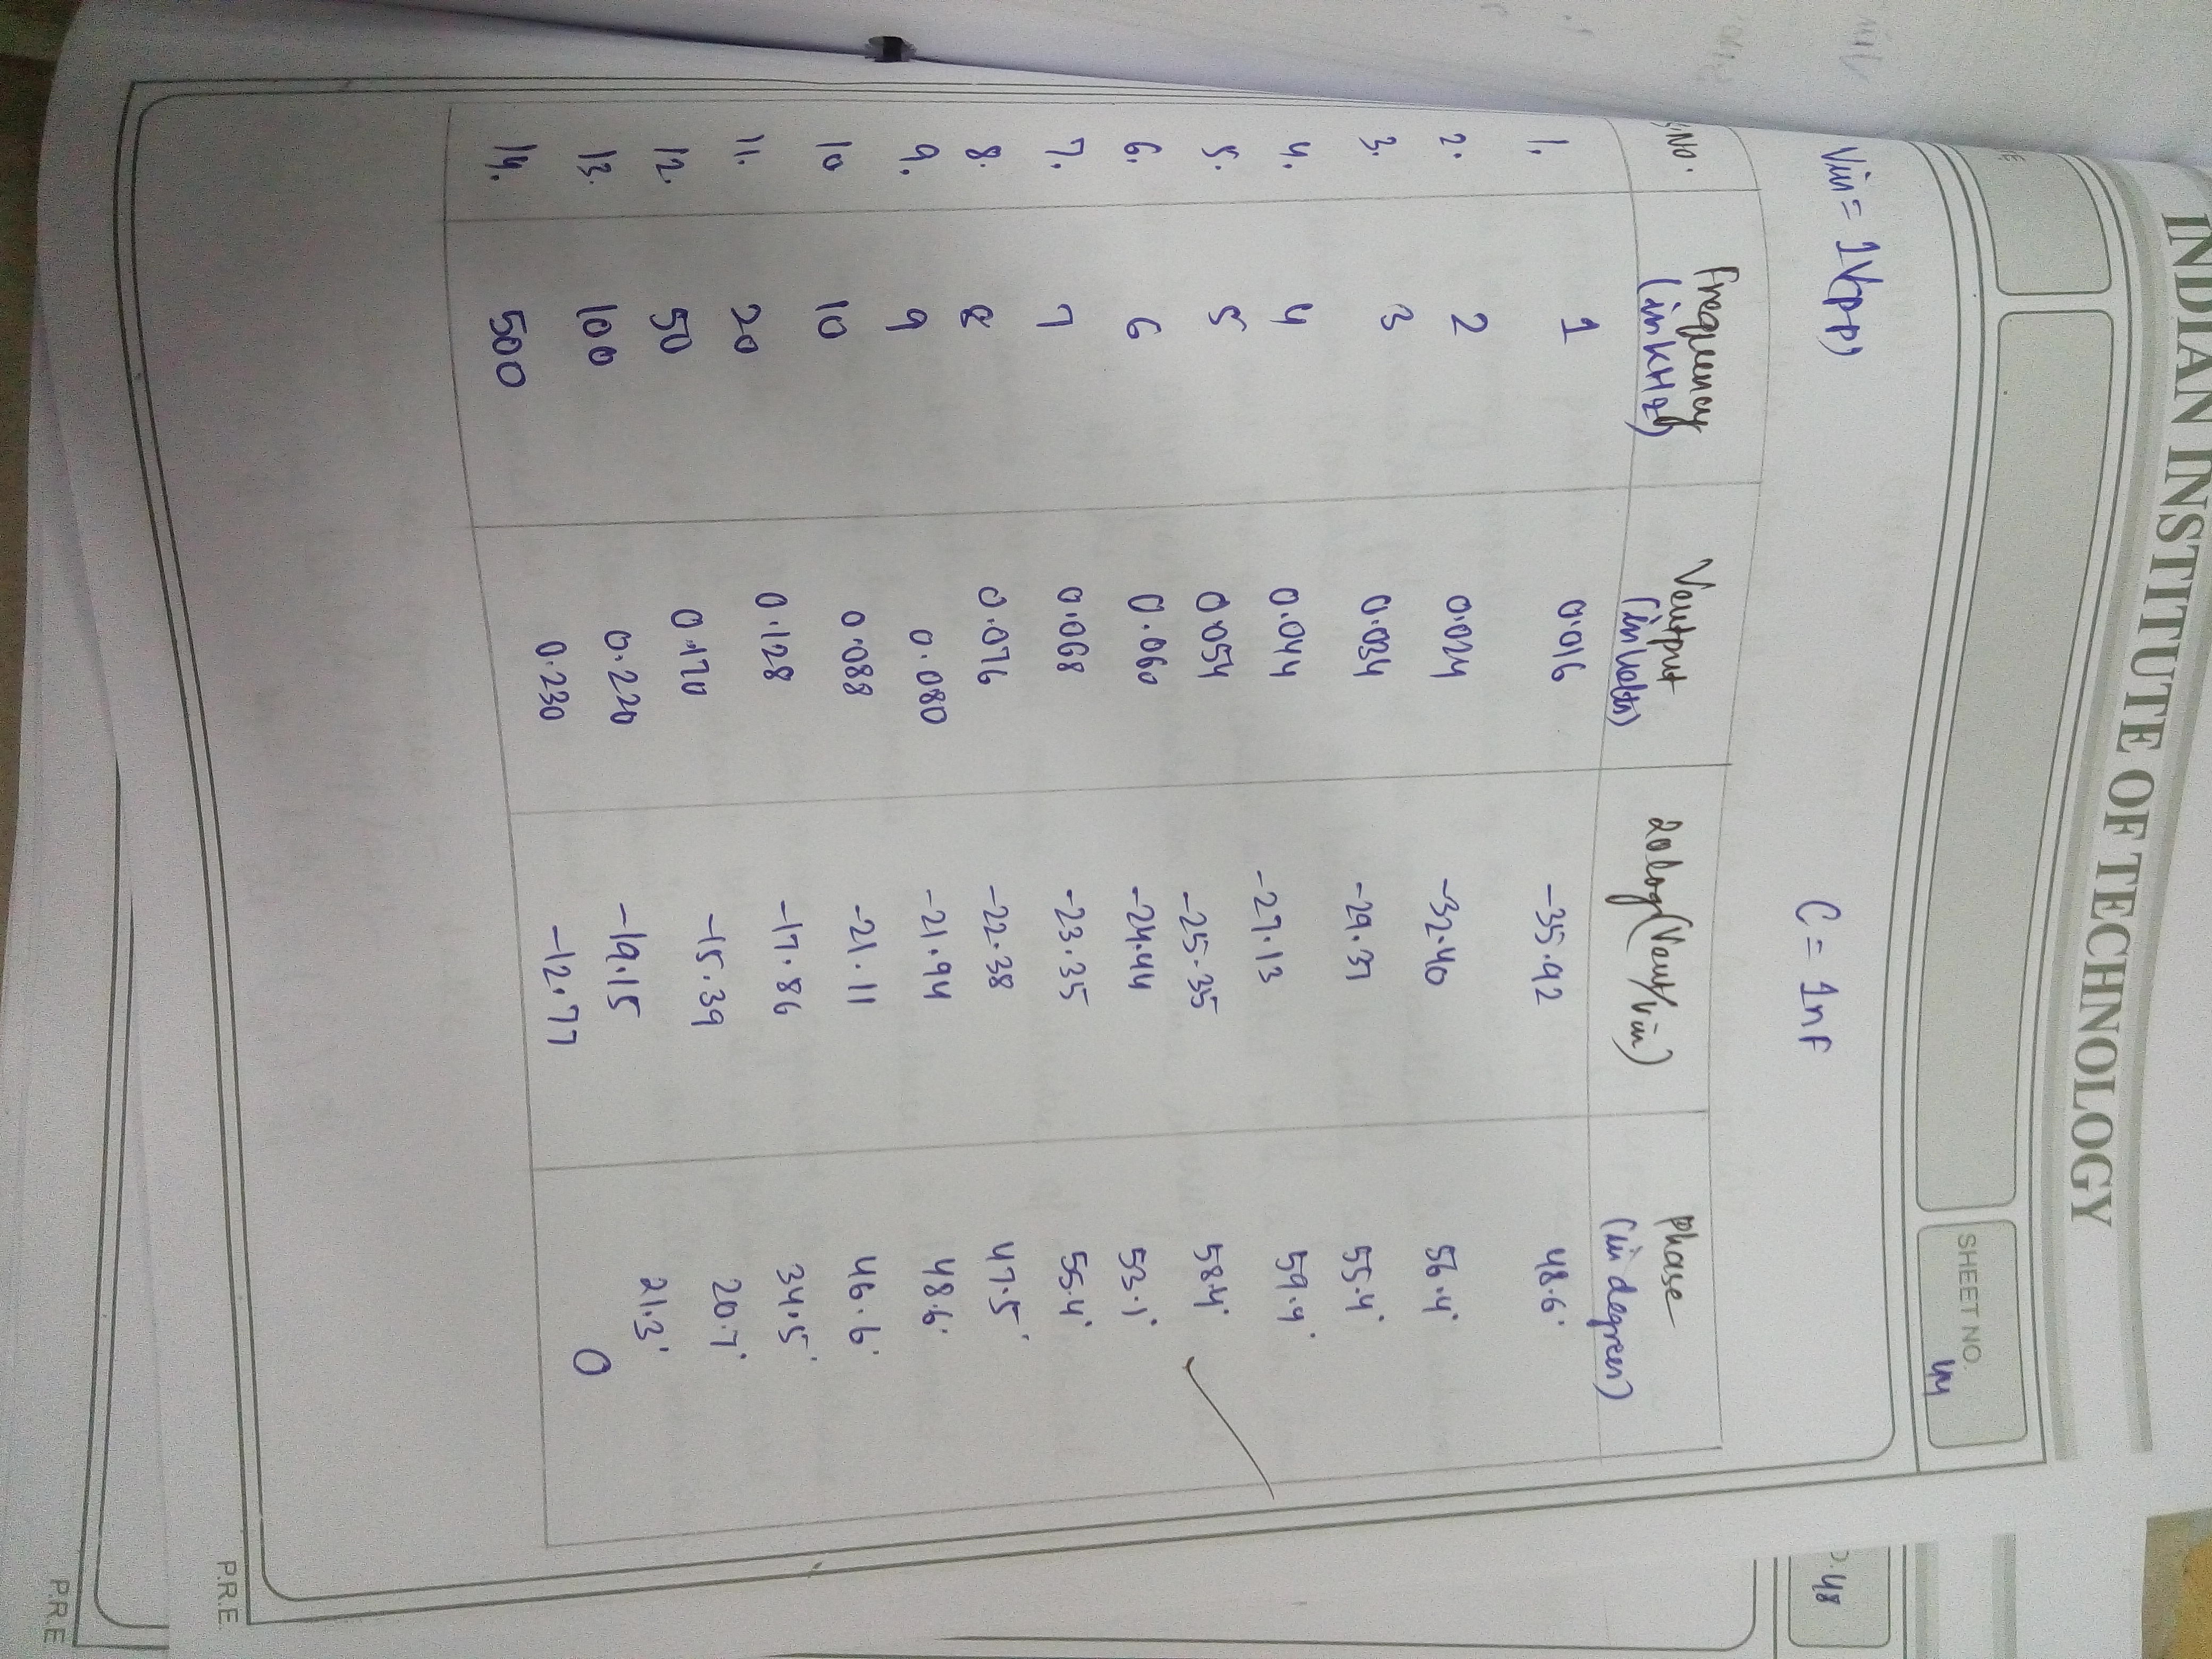 INDIAN INSTITUTE OF TECHNOLOGY
SHEET NO.
44
48
Vin = 1V(p-p)
C = 1nF
S.No. Frequency (in KHz) Voutput (in Volts) 20log(Vout/Vin) Phase (in degrees)
1. 1 0.016 -35.92 48.6°
2. 2 0.024 -32.40 56.4°
3. 3 0.034 -29.37 55.4°
4. 4 0.044 -27.13 59.9°
5. 5 0.054 -25.35 58.4°
6. 6 0.060 -24.44 53.1°
7. 7 0.068 -23.35 55.4°
8. 8 0.076 -22.38 47.5°
9. 9 0.080 -21.94 48.6°
10 10 0.088 -21.11 46.6°
11. 20 0.128 -17.86 34.5°
12. 50 0.170 -15.39 20.7°
13. 100 0.220 -19.15 21.3°
14. 500 0.230 -12.77 0
P.R.E.
P.R.E